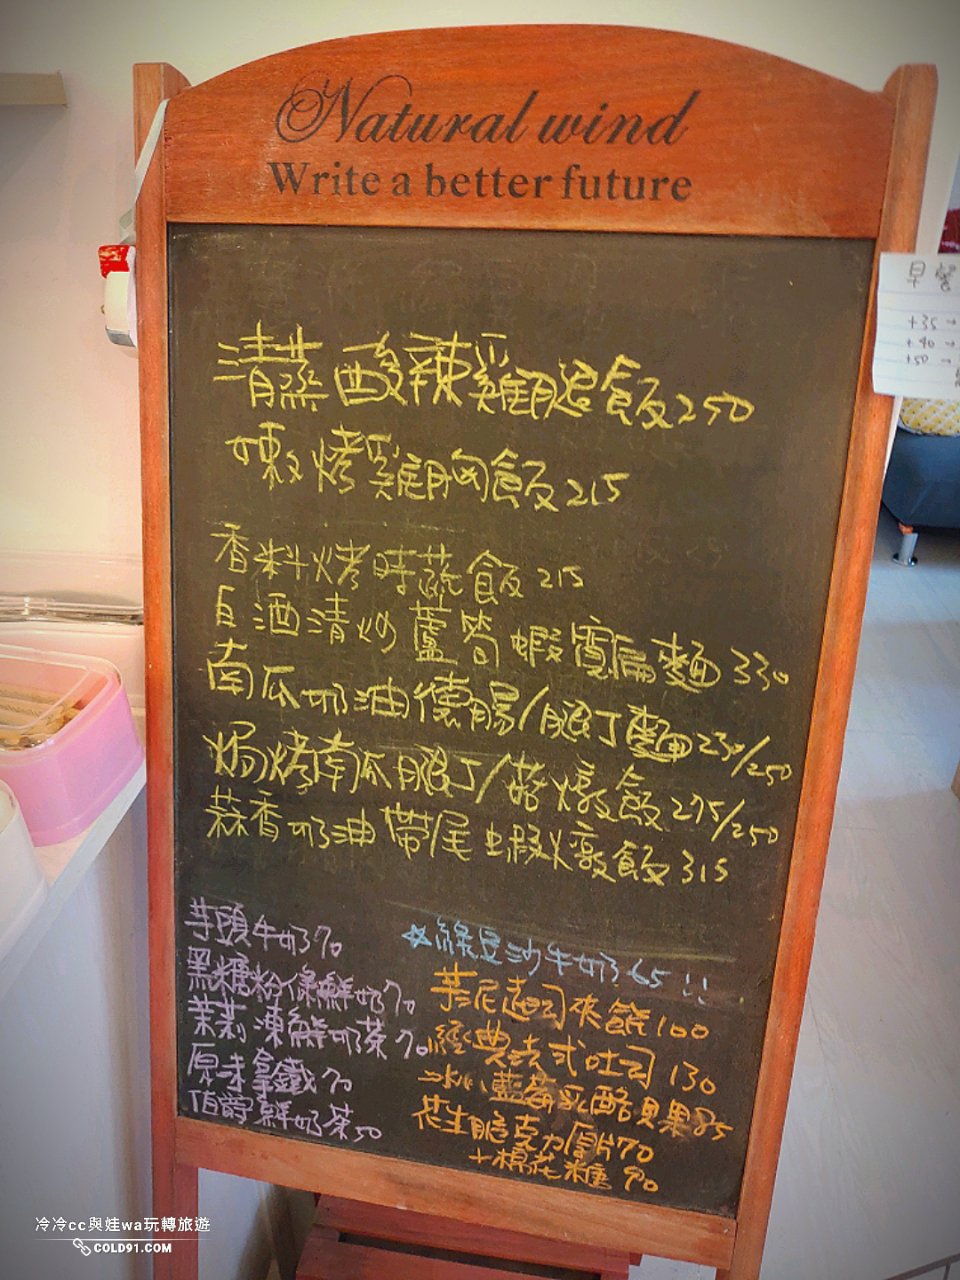 Natural wind
Write a better future
早餐
+35 →
+40 →
+50 →
清蒸酸辣雞腿飯250
嫩烤雞胸飯215
香料烤時蔬飯215
白酒清炒蘆筍蝦寬扁麵330
南瓜奶油德腸/腿丁麵230/250
焗烤南瓜腿丁/菇燉飯275/250
蒜香奶油帶尾蝦燉飯315
芋頭牛奶70
黑糖粉條鮮奶70
茉莉凍鮮奶茶70
原味拿鐵70
伯爵鮮奶茶50
☆綠豆沙牛奶65!!
芋泥起司夾餡100
經典法式吐司130
冰心藍莓乳酪貝果85
花生脆克力厚片70
+棉花糖90
冷冷cc與娃wa玩轉旅遊
COLD91.COM